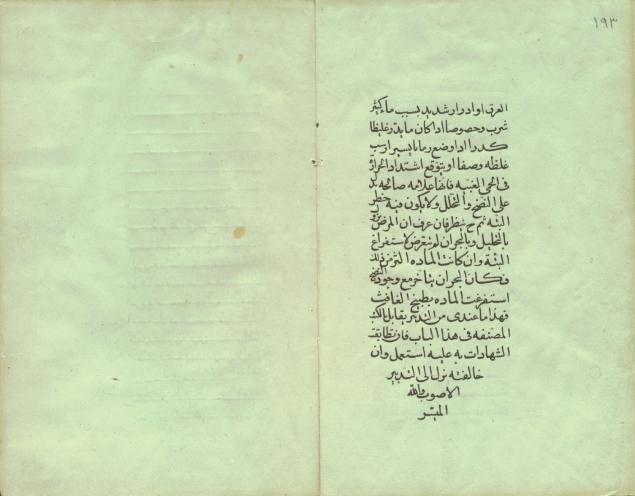 ١٩٣
العرق او ادرار شديد بسبب ماء كثير
شرب وخصوصا اذا كان مايدر غليظا
كدرا اذا وضع زمانا يسيرا رسب
غلظه وصفا او يتوقع اشتداد الحرارة
في الحمى الغبية فانها علامه صالحه تدل
على النضج والتحلل ولا يكون فيه خطر
البتة ثم ينظر فان عرف ان المرض
بالتحليل وبالبحران لم يتعرض لاستفراغ
البتة وان كانت الماده اكثر من ذلك
وكان البحران يتاخر مع وجود النضج
استفرغت الماده بطبيخ الغافث
فهذا ما عندي من التدبير يقابل بالكتب
المصنفه في هذا الباب فان تطابقت
الشهادات به عليه استعمل وان
خالفته نزل الى التدبير
الاصوب والله
الميسر